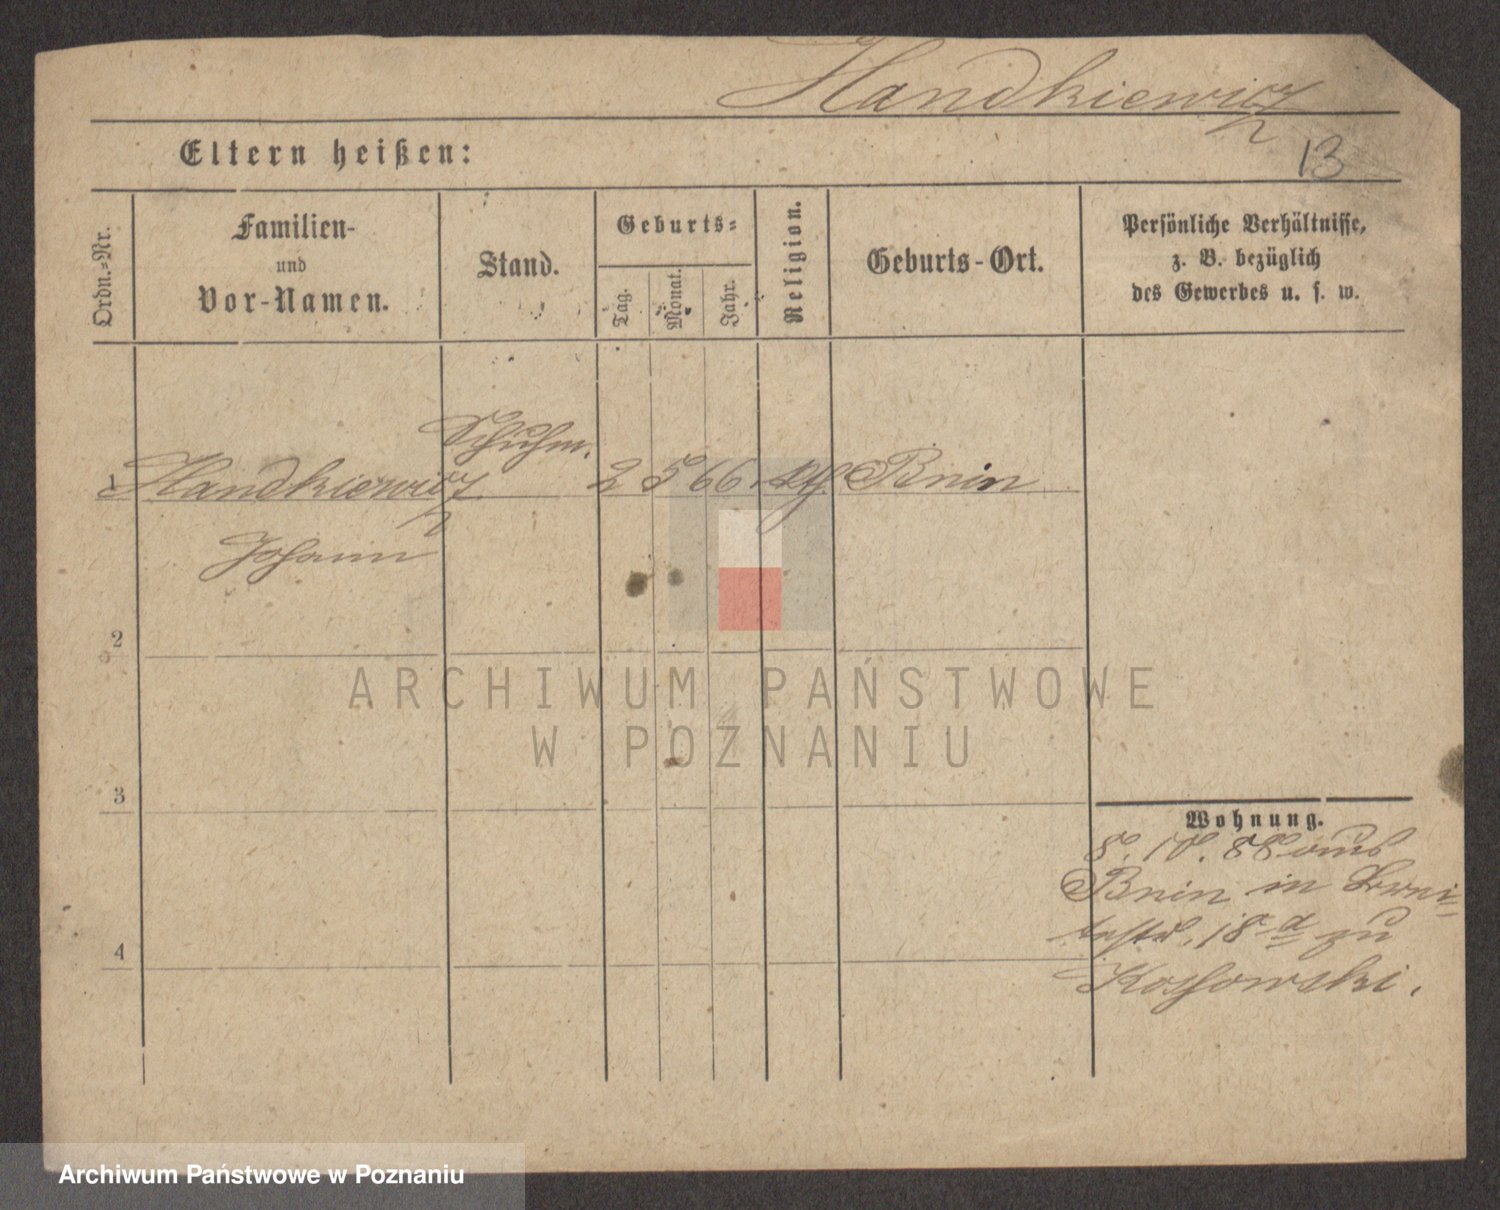 Handkiewicz
Eltern heißen:
13
Ordn.-Nr.
Familien-
und
Vor-Namen.
Stand.
Geburts-
Tag.
Monat.
Jahr.
Religion.
Geburts-Ort.
Persönliche Verhältnisse,
z. B. bezüglich
des Gewerbes u. s. w.
Schuhm.
1 Handkiewicz 2 5 66. kth. Bnin
Johann
2
3
4
Wohnung.
8. 10. 88 aus
Bnin in
18 a zu
Koshowski.
ARCHIWUM PAŃSTWOWE
W POZNANIU
Archiwum Państwowe w Poznaniu